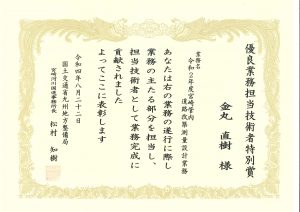 優良業務担当技術者特別賞
金丸 直樹 様
業務名
令和2年度宮崎管内
道路改築測量設計業務
あなたは右の業務の遂行に際し
業務の主たる部分を担当し、
担当技術者として業務完成に
貢献されました
よってここに表彰します
令和四年八月二十二日
国土交通省九州地方整備局
宮崎河川国道事務所長 松村 知樹